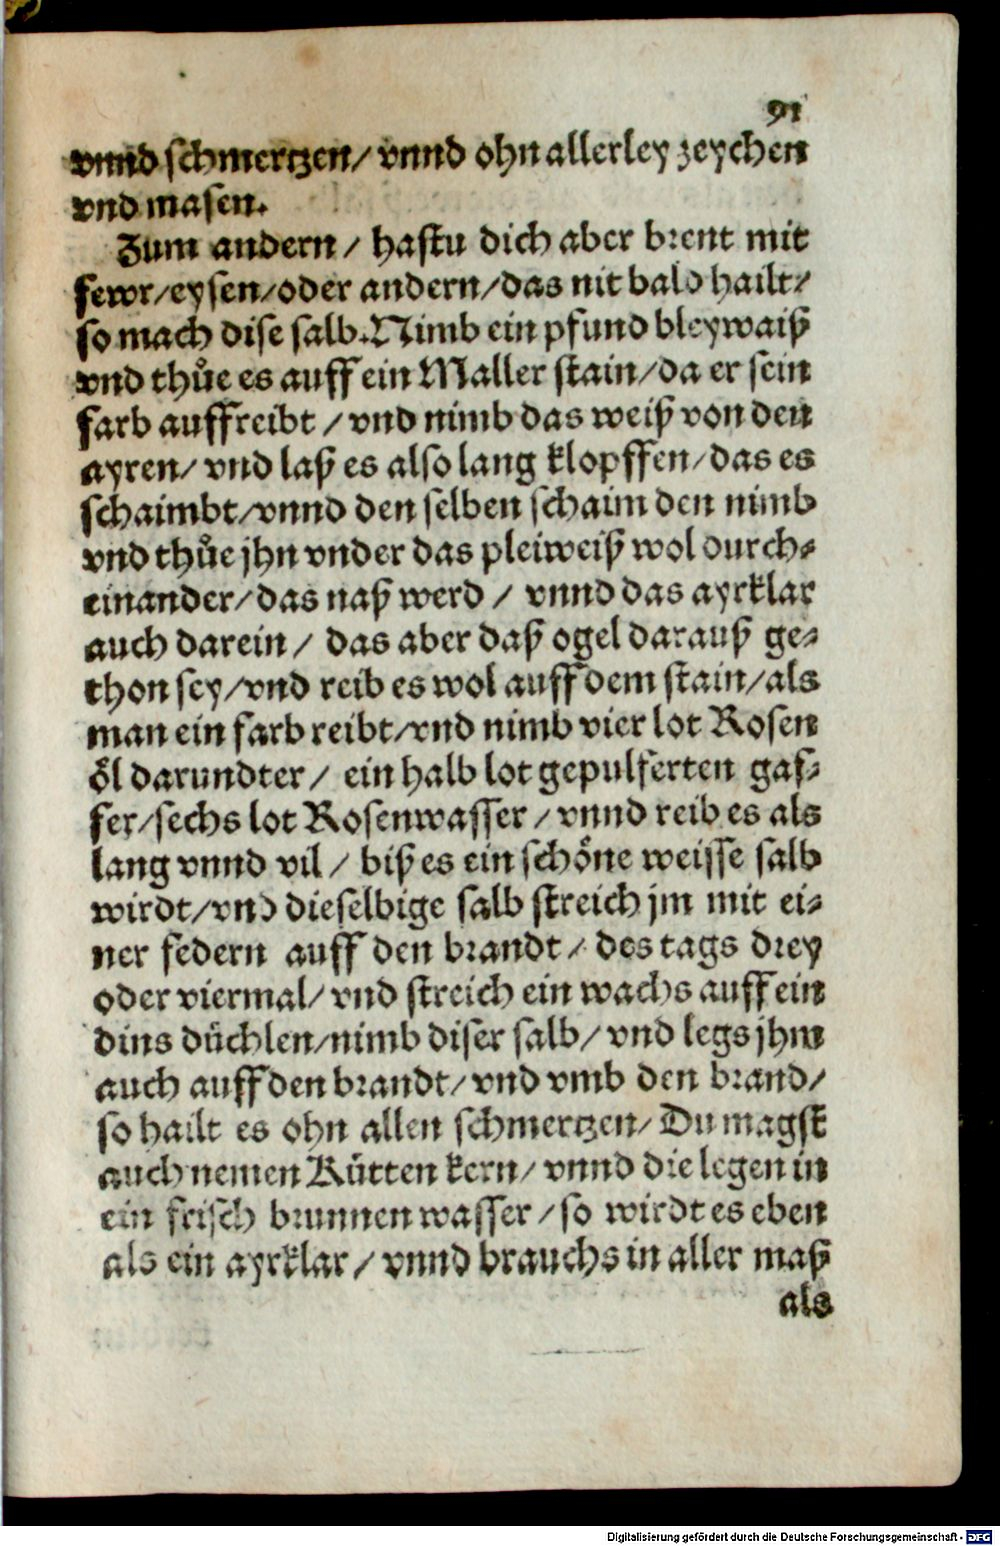 91
vnnd schmertzen/ vnnd ohn allerley zeychen
vnd masen.
Zum andern / hastu dich aber brent mit
fewr/eysen/oder andern/das nit bald hailt/
so mach dise salb. Nimb ein pfund bleywaiß
vnd thuͦe es auff ein Maller stain/da er sein
farb auffreibt / vnd nimb das weiß von den
ayren/ vnd laß es also lang klopffen/das es
schaimbt/vnnd den selben schaim den nimb
vnd thuͦe jhn vnder das pleiweiß wol durch⸗
einander/das naß werd / vnnd das ayrklar
auch darein / das aber daß ogel darauß ge⸗
thon sey/vnd reib es wol auff dem stain/als
man ein farb reibt/vnd nimb vier lot Rosen
oͤl darundter / ein halb lot gepulferten gaf⸗
fer/sechs lot Rosenwasser / vnnd reib es als
lang vnnd vil / biß es ein schoͤne weisse salb
wirdt/vnd dieselbige salb streich jm mit ei⸗
ner federn auff den brandt / des tags drey
oder viermal/ vnd streich ein wachs auff ein
dins duͤchlen/nimb diser salb/ vnd legs jhm
auch auff den brandt/ vnd vmb den brand/
so hailt es ohn allen schmertzen/ Du magst
auch nemen Kuͤtten kern/ vnnd die legen in
ein frisch brunnen wasser / so wirdt es eben
als ein ayrklar / vnnd brauchs in aller maß
als
Digitalisierung gefördert durch die Deutsche Forschungsgemeinschaft - DFG